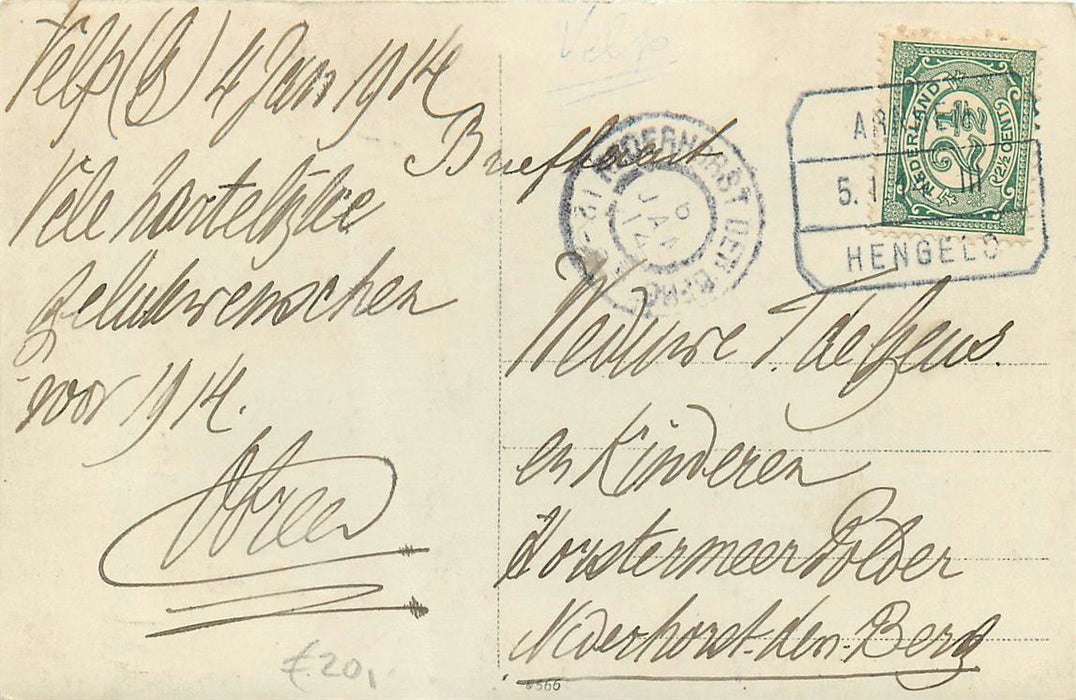 Velp (G) 4 Jan 1914
Vele hartelijke
gelukwenschen
voor 1914.
Velp
Briefkaart
Weduwe
en Kinderen
Horstermeer Polder
Nederhorst-den-Berg
NEDERHORST DEN BERG
JAN
NEDERLAND
2½
(2½ CENT)
5.1 III
HENGELO
£20,
6566